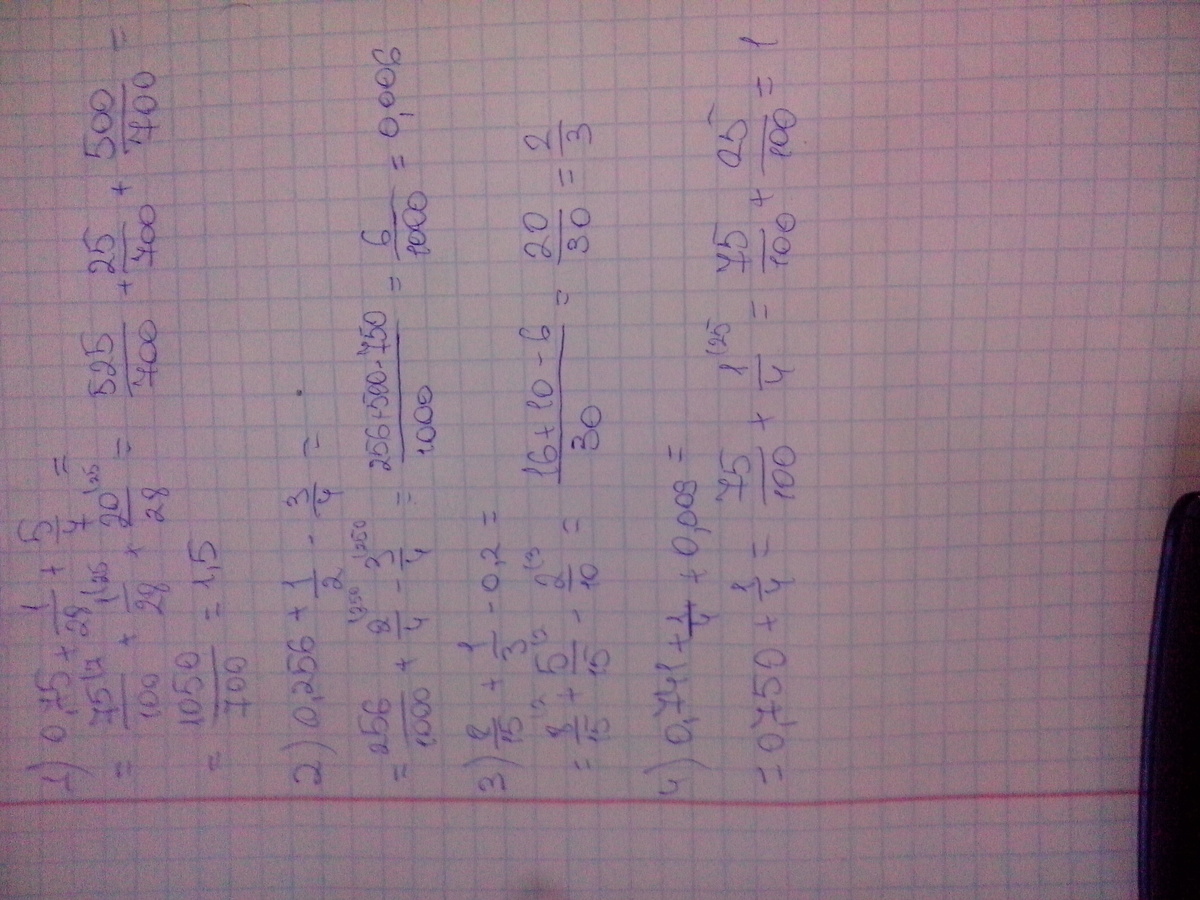 1) 0,75 + 1/28 + 5/7 =
= 75(7/100 + 1(25/28 + 20(25/28 = 525/700 + 25/700 + 500/700 =
= 1050/700 = 1,5
2) 0,256 + 1/2 - 3/4 =
= 256/1000 + 2(250/4 - 3(250/4 = 256+500-750/1000 = 6/1000 = 0,006
3) 8/15 + 1/3 - 0,2 =
= 8(2/15 + 5(2/15 - 2(3/10 = 16+10-6/30 = 20/30 = 2/3
4) 0,741 + 1/4 + 0,009 =
= 0,750 + 1/4 = 75/100 + 1(25/4 = 75/100 + 25/100 = 1